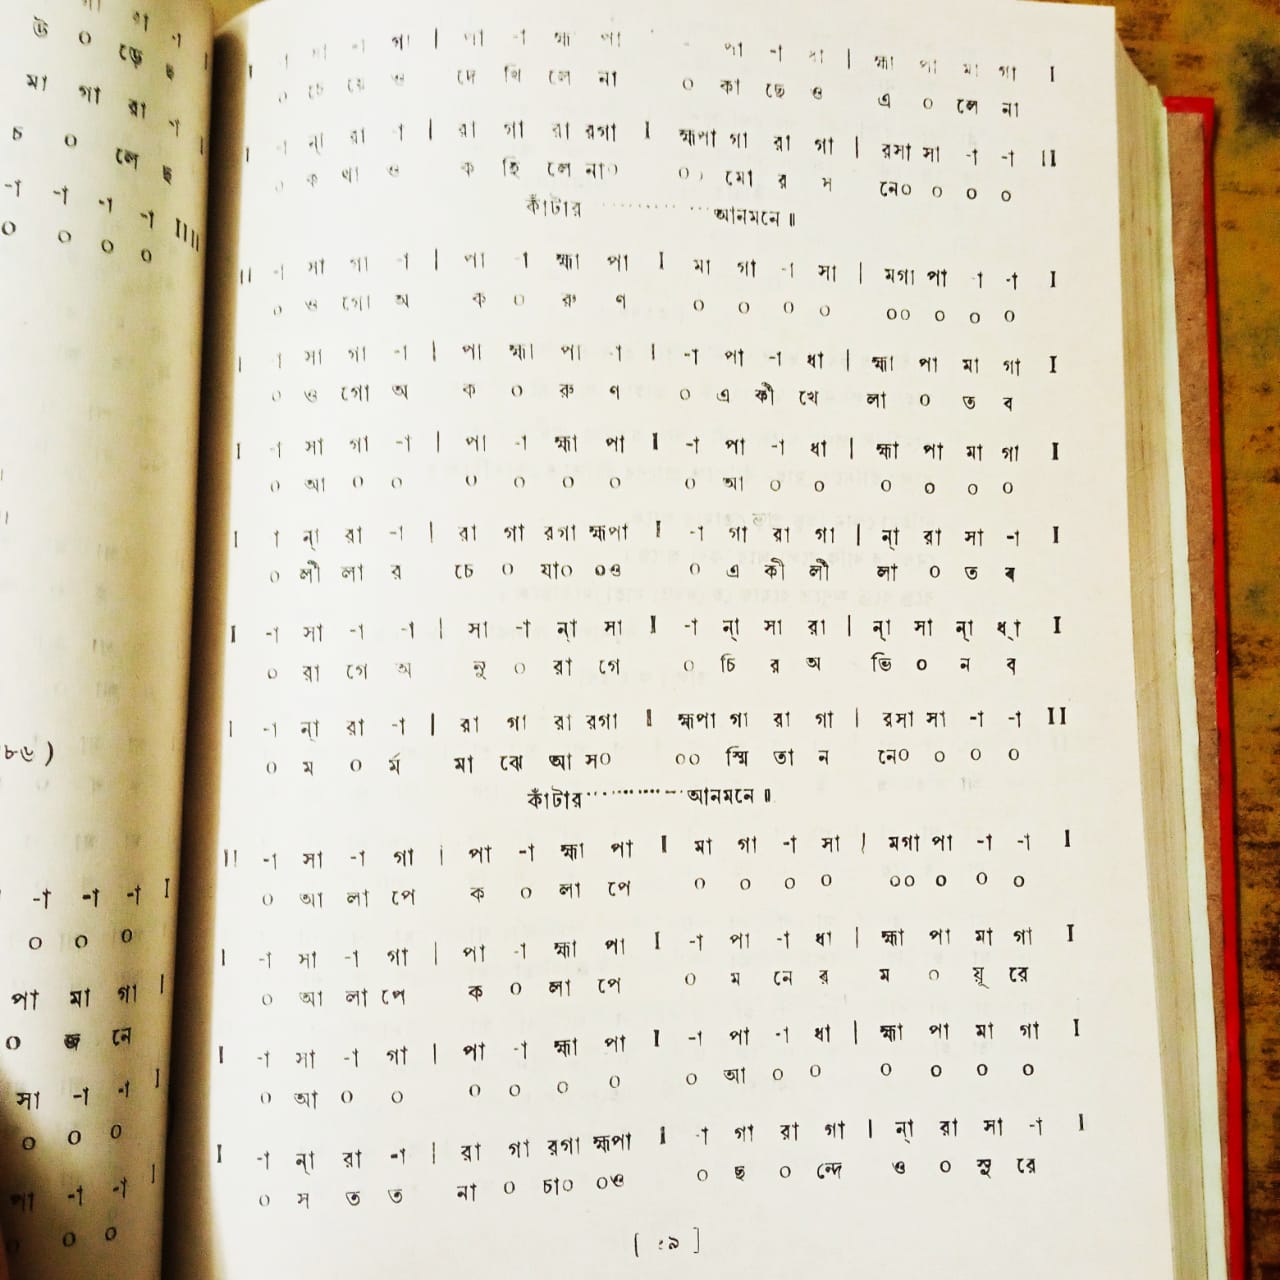 সা -া গা | পা -া হ্মা পা - পা -া ধা | হ্মা পা মা গা I
০ চে য়ে ও দে খি লে না ০ কা ছে ও এ ০ লে না
I -া ন্‌া রা -া | রা গা রা রগা I হ্মপা গা রা গা | রসা সা -া -া II
০ ক থা ও ক হি লে না০ ০০ মো র ম নে০ ০ ০ ০
কাঁটার ............ আনমনে॥
II -া সা গা -া | পা -া হ্মা পা I মা গা -া সা | মগা পা -া -া I
০ ও গো অ ক ০ রু ণ ০ ০ ০ ০ ০০ ০ ০ ০
I -া সা গা -া | পা হ্মা পা -া I -া পা -া ধা | হ্মা পা মা গা I
০ ও গো অ ক ০ রু ণ ০ এ কী খে লা ০ ত ব
I -া সা গা -া | পা -া হ্মা পা I -া পা -া ধা | হ্মা পা মা গা I
০ আ ০ ০ ০ ০ ০ ০ ০ আ ০ ০ ০ ০ ০ ০
I া ন্‌া রা -া | রা গা রগা হ্মপা I -া গা রা গা | ন্‌া রা সা -া I
০ লী লা র চে ০ যা০ ০ও ০ এ কী লী লা ০ ত ব
I -া সা -া -া | সা -া ন্‌া সা I -া ন্‌া সা রা | ন্‌া সা ন্‌া ধ্‌া I
০ রা গে অ নু ০ রা গে ০ চি র অ ভি ০ ন ব
I -া ন্‌া রা -া | রা গা রা রগা I হ্মপা গা রা গা | রসা সা -া -া II
০ ম ০ র্ম মা ঝে আ স০ ০০ স্মি তা ন নে০ ০ ০ ০
কাঁটার............আনমনে॥
II -া সা -া গা | পা -া হ্মা পা I মা গা -া সা | মগা পা -া -া I
০ আ লা পে ক ০ লা পে ০ ০ ০ ০ ০০ ০ ০ ০
I -া সা -া গা | পা -া হ্মা পা I -া পা -া ধা | হ্মা পা মা গা I
০ আ লা পে ক ০ লা পে ০ ম নে র ম ০ য়ূ রে
I -া সা -া গা | পা -া হ্মা পা I -া পা -া ধা | হ্মা পা মা গা I
০ আ ০ ০ ০ ০ ০ ০ ০ আ ০ ০ ০ ০ ০ ০
I -া ন্‌া রা -া | রা গা রগা হ্মপা I -া গা রা গা | ন্‌া রা সা -া I
০ স ত ত না ০ চা০ ০ও ০ ছ ০ ন্দে ও ০ সু রে